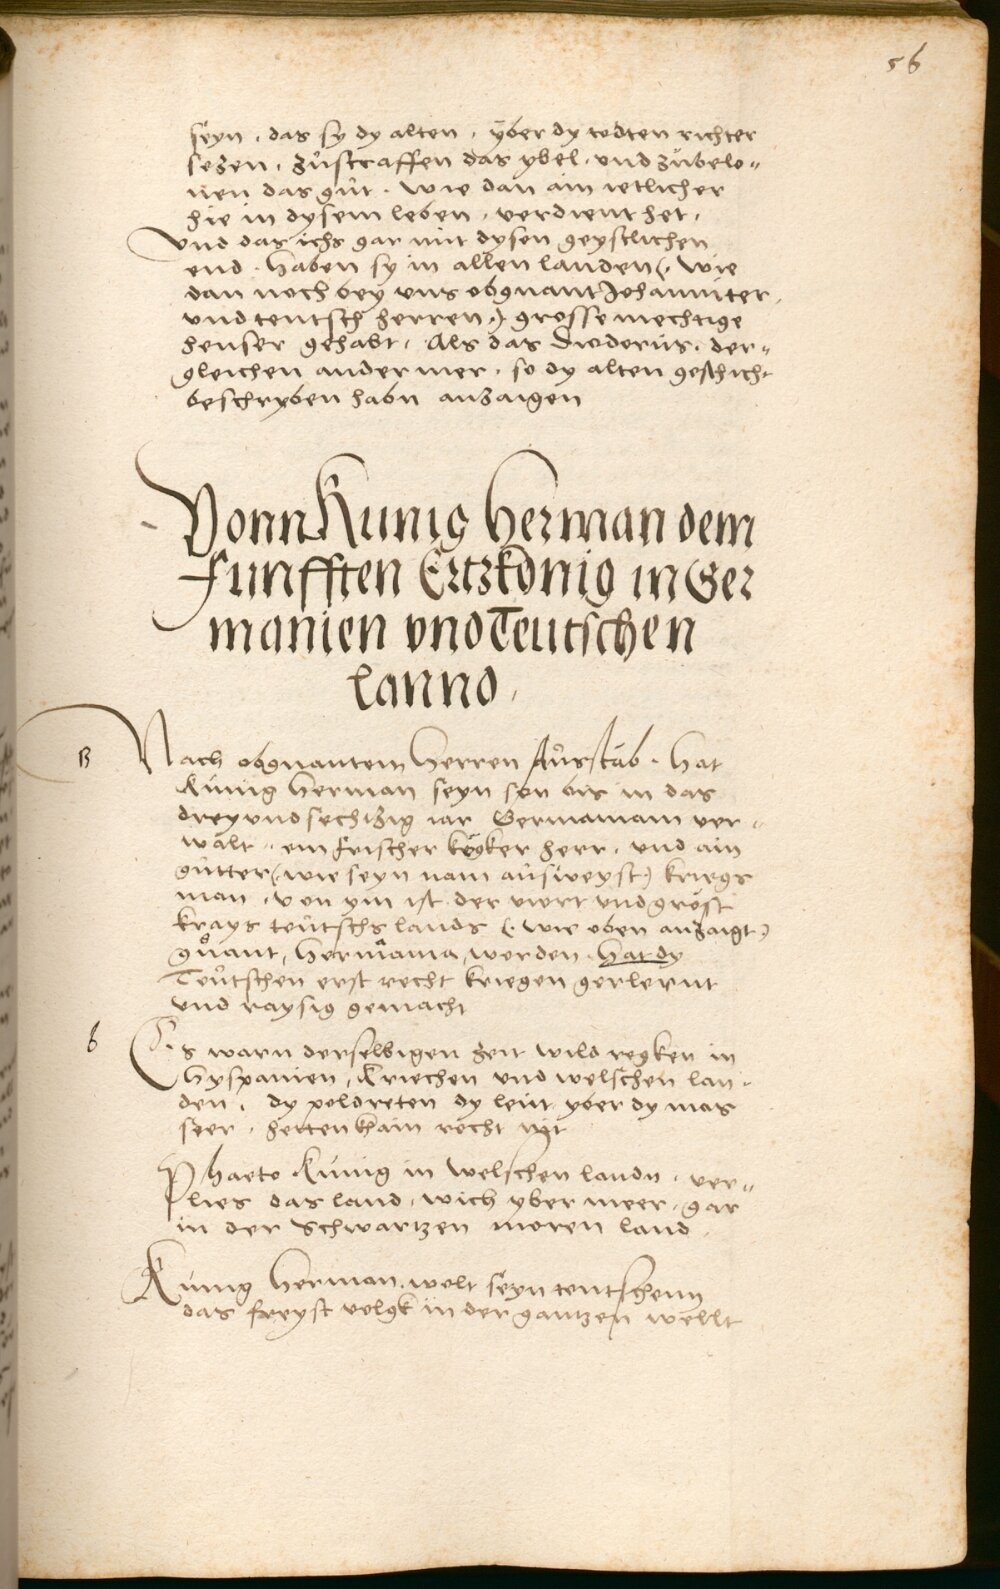 56
seyn . das sy dy alten . yber dy todten richter
sezen . zůstraffen das ybel . vnd zůbelo=
nen das gůt . wie dan ain ietlicher
hie in dysem leben . verdient het .
Vnd das ichs gar mit dysen geystlichen
end . haben sy in allen landen (. wie
dan noch bey vns obgnant Johanniter
vnd teutsch herren .) grosse mechtige
heuser gehabt . Als das Diodorus . der=
gleichen ander mer . so dy alten geschicht
beschryben habn anzaigen
Vonn Kunig Herman dem
Funfften Ertzkönig in Ger
manien vnd Teutschen
lannd .
B
Nach obgnantem Herren Aůstäb . hat
Künig Herman seyn son bis in das
drey vnd sechtzig iar Germaniam ver=
walt . ein frischer kecker herr . vnd ain
gůtter (. wie seyn nam aůsweyst .) kriegs
man . von ym ist der viert vnd gröst
krays teůtschs lands (. wie oben anzaigt .)
gnant , Hermania , worden . hat dy
Teůtschen erst recht kriegen gerlernt
vnd raysig gemacht
6
Es warn derselbigen zeit wild regken in
Hyspanien , Kriechen vnd welschen lan=
den . dy poldreten dy leut yber dy mas
seer . hetten khain recht nit
Phaeto Künig in welschen landn . ver=
lies das land . wich yber meer . gar
in der schwartzen moren land
Künig Herman . welt seyn teutschenn
das freyst volgk in der gantzen wellt